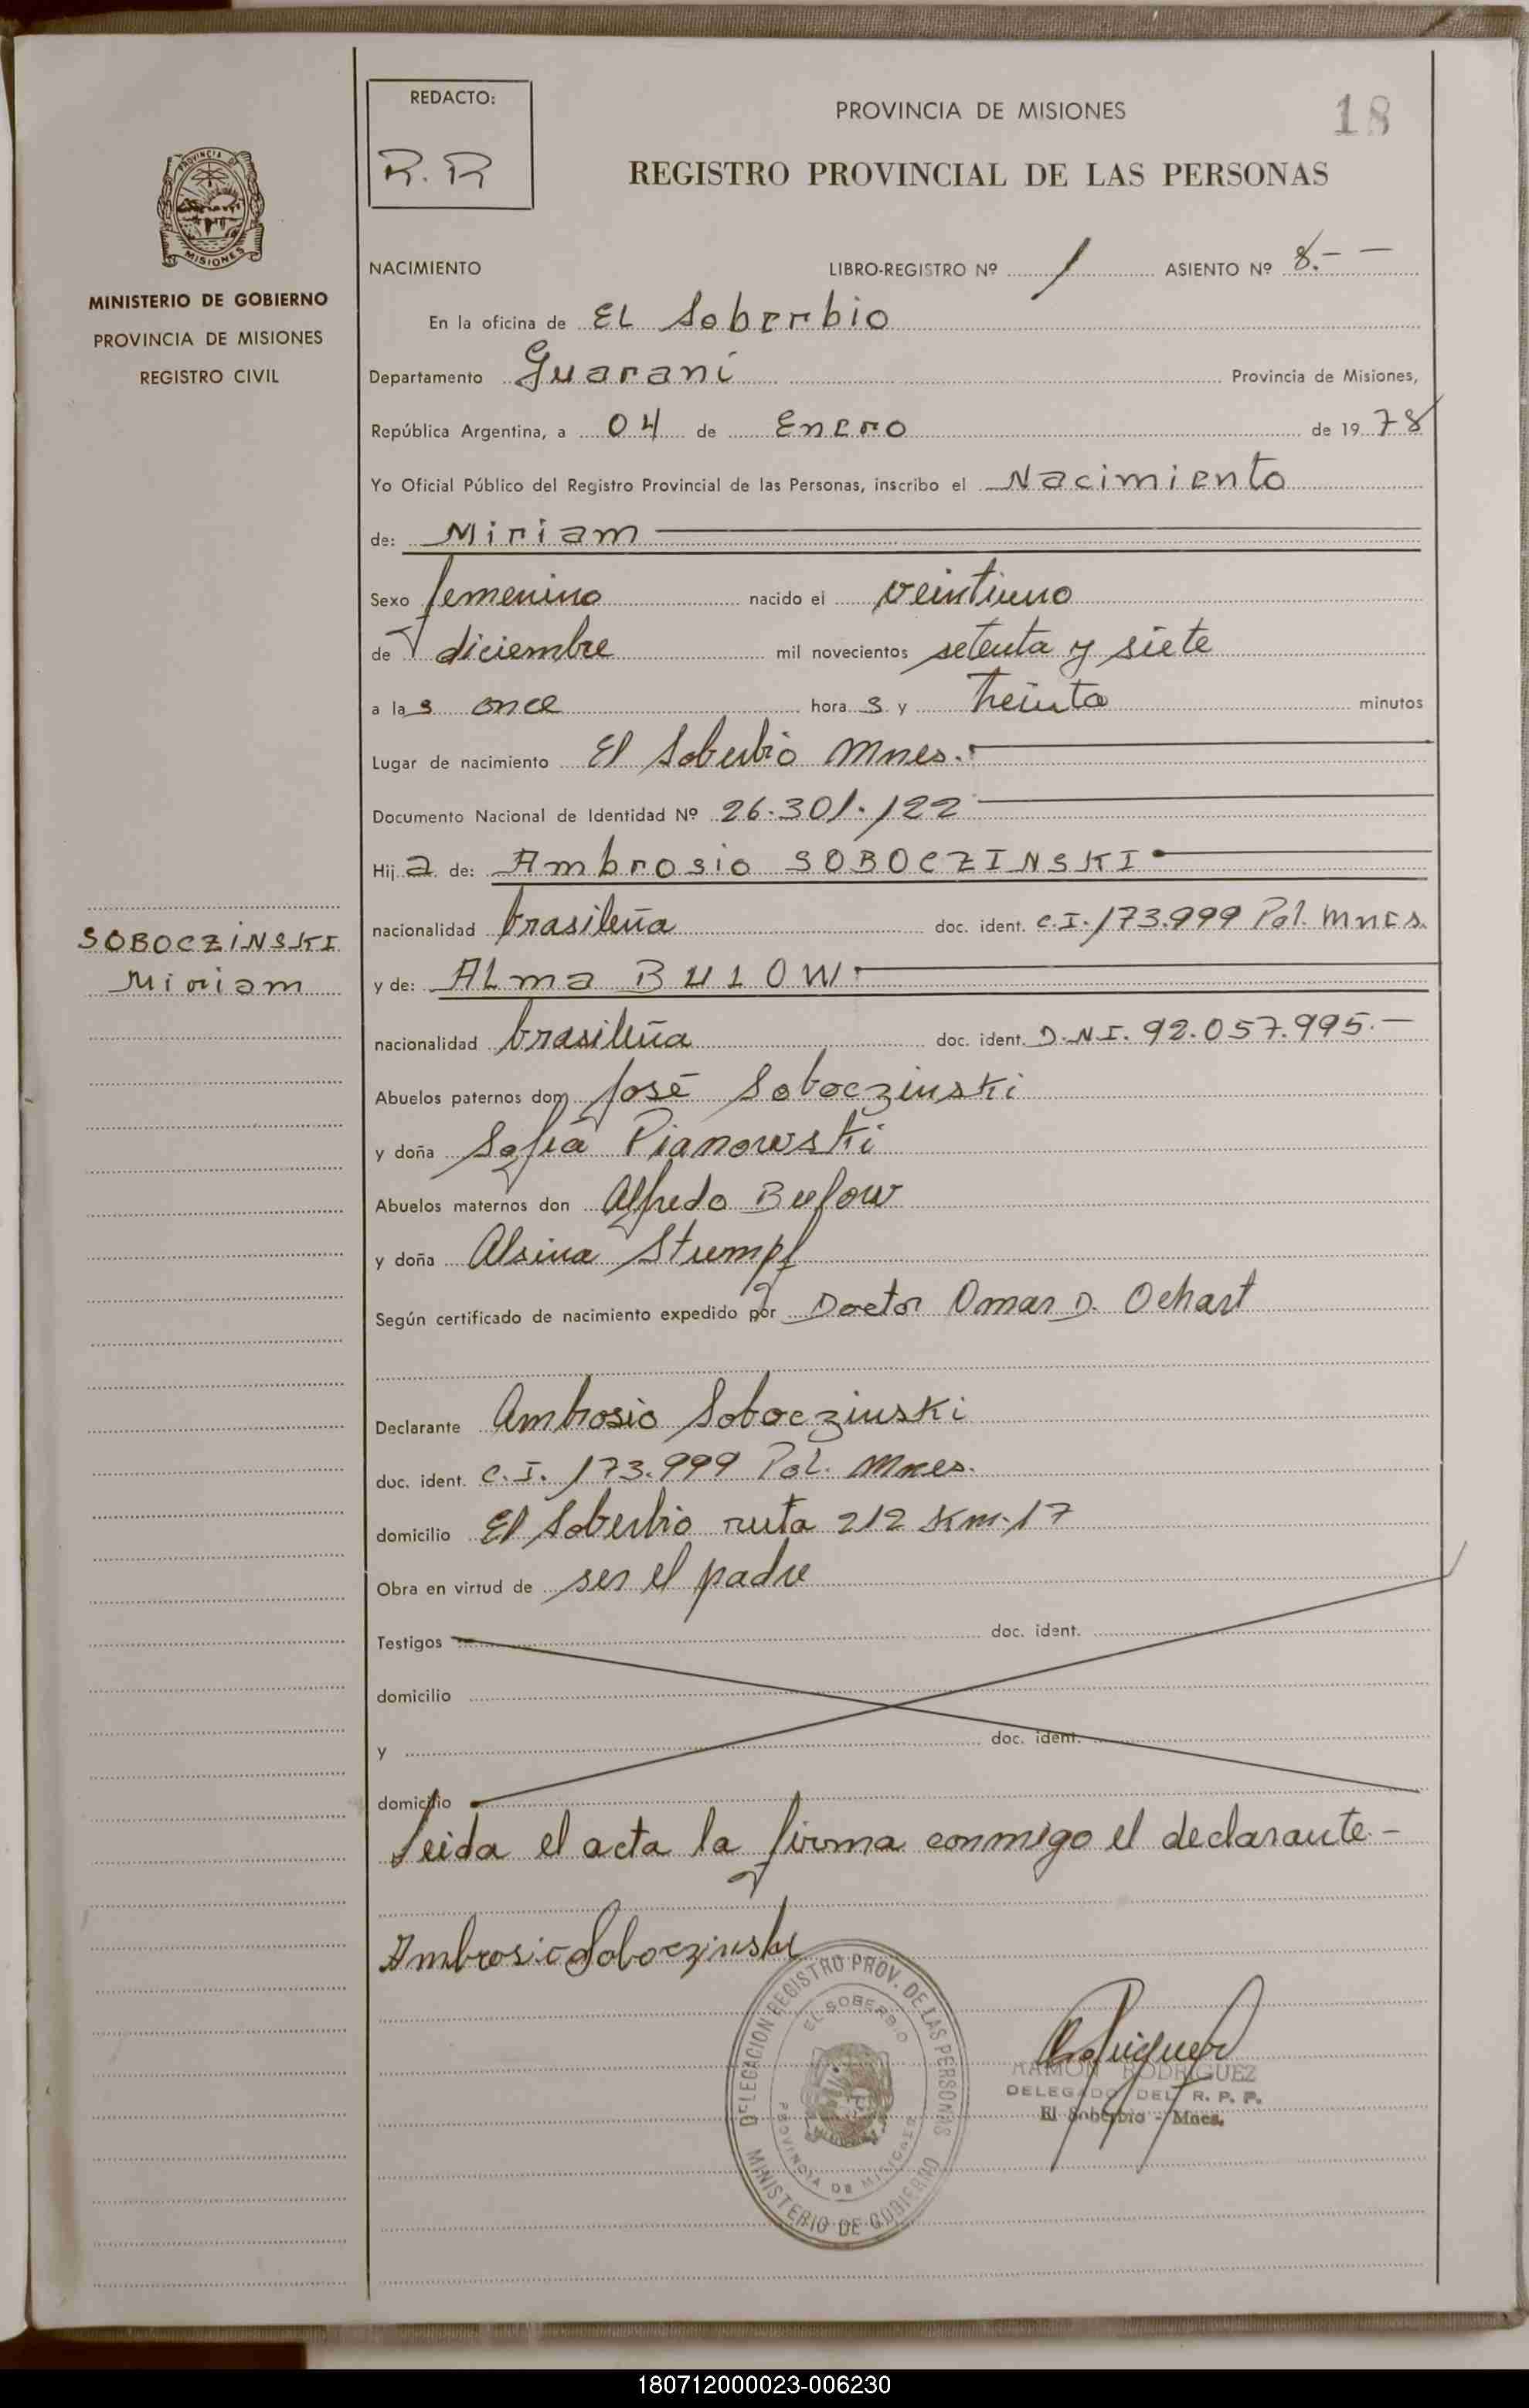 REDACTO:
R.R
PROVINCIA DE MISIONES
18
REGISTRO PROVINCIAL DE LAS PERSONAS
PROVINCIA DE
MISIONES
MINISTERIO DE GOBIERNO
PROVINCIA DE MISIONES
REGISTRO CIVIL
NACIMIENTO LIBRO-REGISTRO Nº 1 ASIENTO Nº 8.- -
En la oficina de EL Soberbio
Departamento Guaraní Provincia de Misiones,
República Argentina, a 04 de Enero de 1978
Yo Oficial Público del Registro Provincial de las Personas, inscribo el Nacimiento
de: Miriam
Sexo femenino nacido el veintiuno
de diciembre mil novecientos setenta y siete
a las once horas y treinta minutos
Lugar de nacimiento El Soberbio Mnes.
Documento Nacional de Identidad Nº 26.301.122
Hija de: Ambrosio SOBOCZINSKI
nacionalidad brasileña doc. ident. C.I. 173.999 Pol. Mnes.
SOBOCZINSKI
Miriam
y de: ALma BULOW
nacionalidad brasileña doc. ident. D.N.I. 92.057.995.-
Abuelos paternos don José Soboczinski
y doña Sofía Pianowski
Abuelos maternos don Alfredo Bulow
y doña Alsina Stumpf
Según certificado de nacimiento expedido por Doctor Omar D. Ochart
Declarante Ambrosio Soboczinski
doc. ident. C.I. 173.999 Pol. Mnes.
domicilio El Soberbio ruta 212 Km-17
Obra en virtud de ser el padre
Testigos doc. ident.
domicilio
y doc. ident.
domicilio
Leida el acta la firma conmigo el declarante.-
Ambrosio Soboczinski
DELEGACION REGISTRO PROV. DE LAS PERSONAS
EL SOBERBIO
PROVINCIA DE MISIONES
MINISTERIO DE GOBIERNO
RAMON RODRIGUEZ
DELEGADO DEL R. P. P.
El Soberbio - Mnes.
180712000023-006230